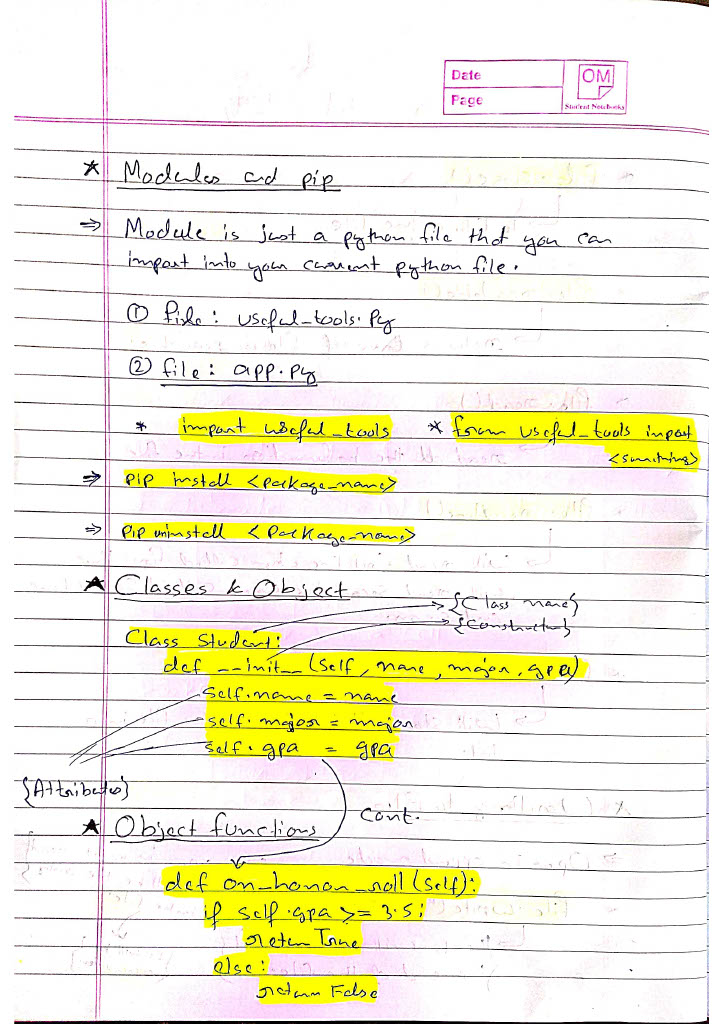 Date
OM
Page
Student Notebooks
* Modules and pip
⇒ Module is just a python file that you can
import into your current python file.
① file: useful_tools.py
② file: app.py
* import useful_tools * from useful_tools import
<something>
⇒ pip install <package_name>
⇒ pip uninstall <Package_name>
* Classes & Object
{Class name}
{Constructor}
Class Student:
def __init__ (self, name, major, gpa)
self.name = name
self.major = major
self.gpa = gpa
{Attributes}
cont.
* Object functions
def on_honor_roll (self):
if self.gpa >= 3.5:
return True
else:
return False